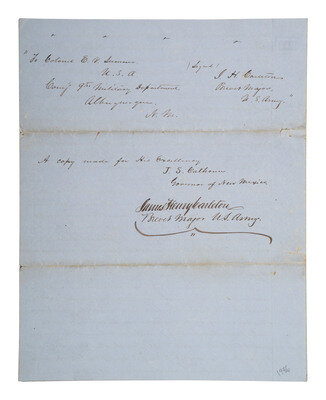 " " " "
"To Colonel E. V. Sumner (Signed) J. H. Carleton
U. S. A. Brevet Major,
Com'g 9th Military Department U. S. Army."
Albuquerque,
N. M.
A copy made for His Excellency
J. S. Calhoun
Governor of New Mexico
James Henry Carleton
Brevet Major U.S. Army.
"